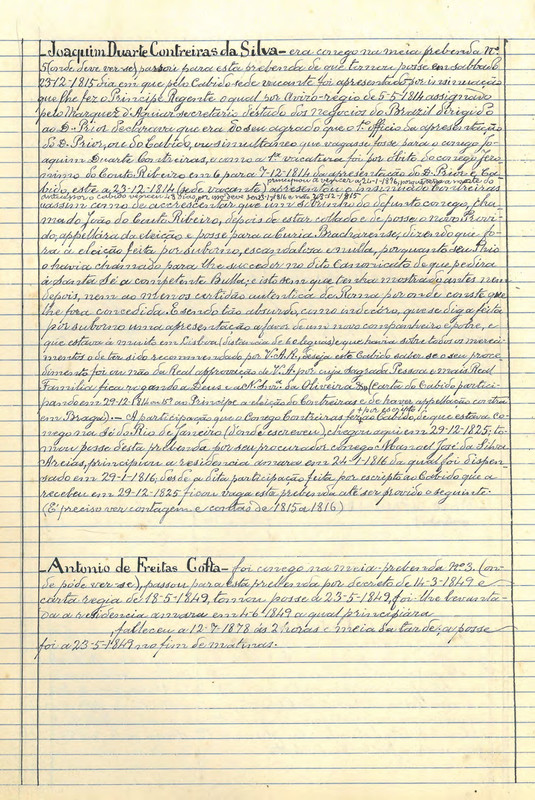 Joaquim Duarte Contreiras da Silva - era conego na meia prebenda Nº
5 (onde deve ver-se), passou para esta prebenda de que tomou posse em sabbado
23-12-1815 dia em que pelo Cabido sede vacante foi apresentado por insinuação
que lhe fez o Principe Regente o qual por Aviso-regio de 5-5-1814 assignado
pelo Marquez d'Aguiar secretario destado dos negocios do Brazil dirigido
ao D. Prior declarava que era do seu agrado que o 1º officio da apresentação
do D. Prior, ou do Cabido, ou simultanea que vagasse fosse para o conego Jo-
aquim Duarte Contreiras, e como a 1ª vacatura foi por obito do conego Jero-
nimo do Couto Ribeiro em 6 para 7-12-1814 da apresentação do D. Prior e Ca-
bido, este a 23-12-1814 (sede vacante) apresentou o insinuado Contreiras
assim como de accrescentar que um sobrinho do defunto conego, cha-
mado João do Couto Ribeiro, depois de estar collado e de posse o novo Provi-
do, appellára da eleição e posse para a Curia Bracharense, dizendo que fo-
ra a eleição feita por suborno, escandaloza e nulla, porquanto seu Thio
o havia chamado para lhe succeder no dito Canonicato de que pedira
á Santa Sé a competente Bulla; e isto sem que tenha mostrado antes nem
depois, nem ao menos certidão autentica de Roma por onde conste que
lhe fora concedida. E sendo tão absurdo, como indecóro, que se diga feita
por suborno uma apresentação a favor de um novo companheiro e pobre, e
que estava á muito em Lisboa (distancia de 60 leguas) que havia sobre todos os mereci-
mentos o de ter sido recommendado por V.A.R., deseja este Cabido saber se o seu proce-
dimento foi ou não da Real approvação de V.A. por cuja sagrada Pessoa e mais Real
Familia fica rogando a Deus e a N. Snrª. da Oliveira &ª (Carta do Cabido partici-
pando em 29-12-1814 ao Principe a eleição do Contreiras e de haver appellação contra
em Braga). - A participação que o Conego Contreiras fez + por escripto ao Cabido, de que estava co-
nego na Sé do Rio de Janeiro (donde escreveu), chegou aqui em 29-12-1825; to-
mou posse desta prebenda por seu procurador conego Manoel José da Silva
Areias, principiou a residencia amara em 24-1-1816 da qual foi dispen-
sado em 29-1-1816, desde a dita participação feita por escripto ao Cabido que a
recebeu em 29-12-1825 ficou vaga esta prebenda até ser provido o seguinte.
(É preciso ver contagem e contas de 1815 a 1816)
Antonio de Freitas Costa - foi conego na meia-prebenda Nº 3. (on-
de póde ver-se), passou para esta prebenda por decreto de 14-3-1849 e
carta regia de 18-5-1849, tomou posse a 23-5-1849, foi-lhe levanta-
da a residencia amara em 4-6-1849 a qual principiára
, falleceu a 12-7-1878 ás 2 horas e meia da tarde; a posse
foi a 23-5-1849 no fim de matinas.